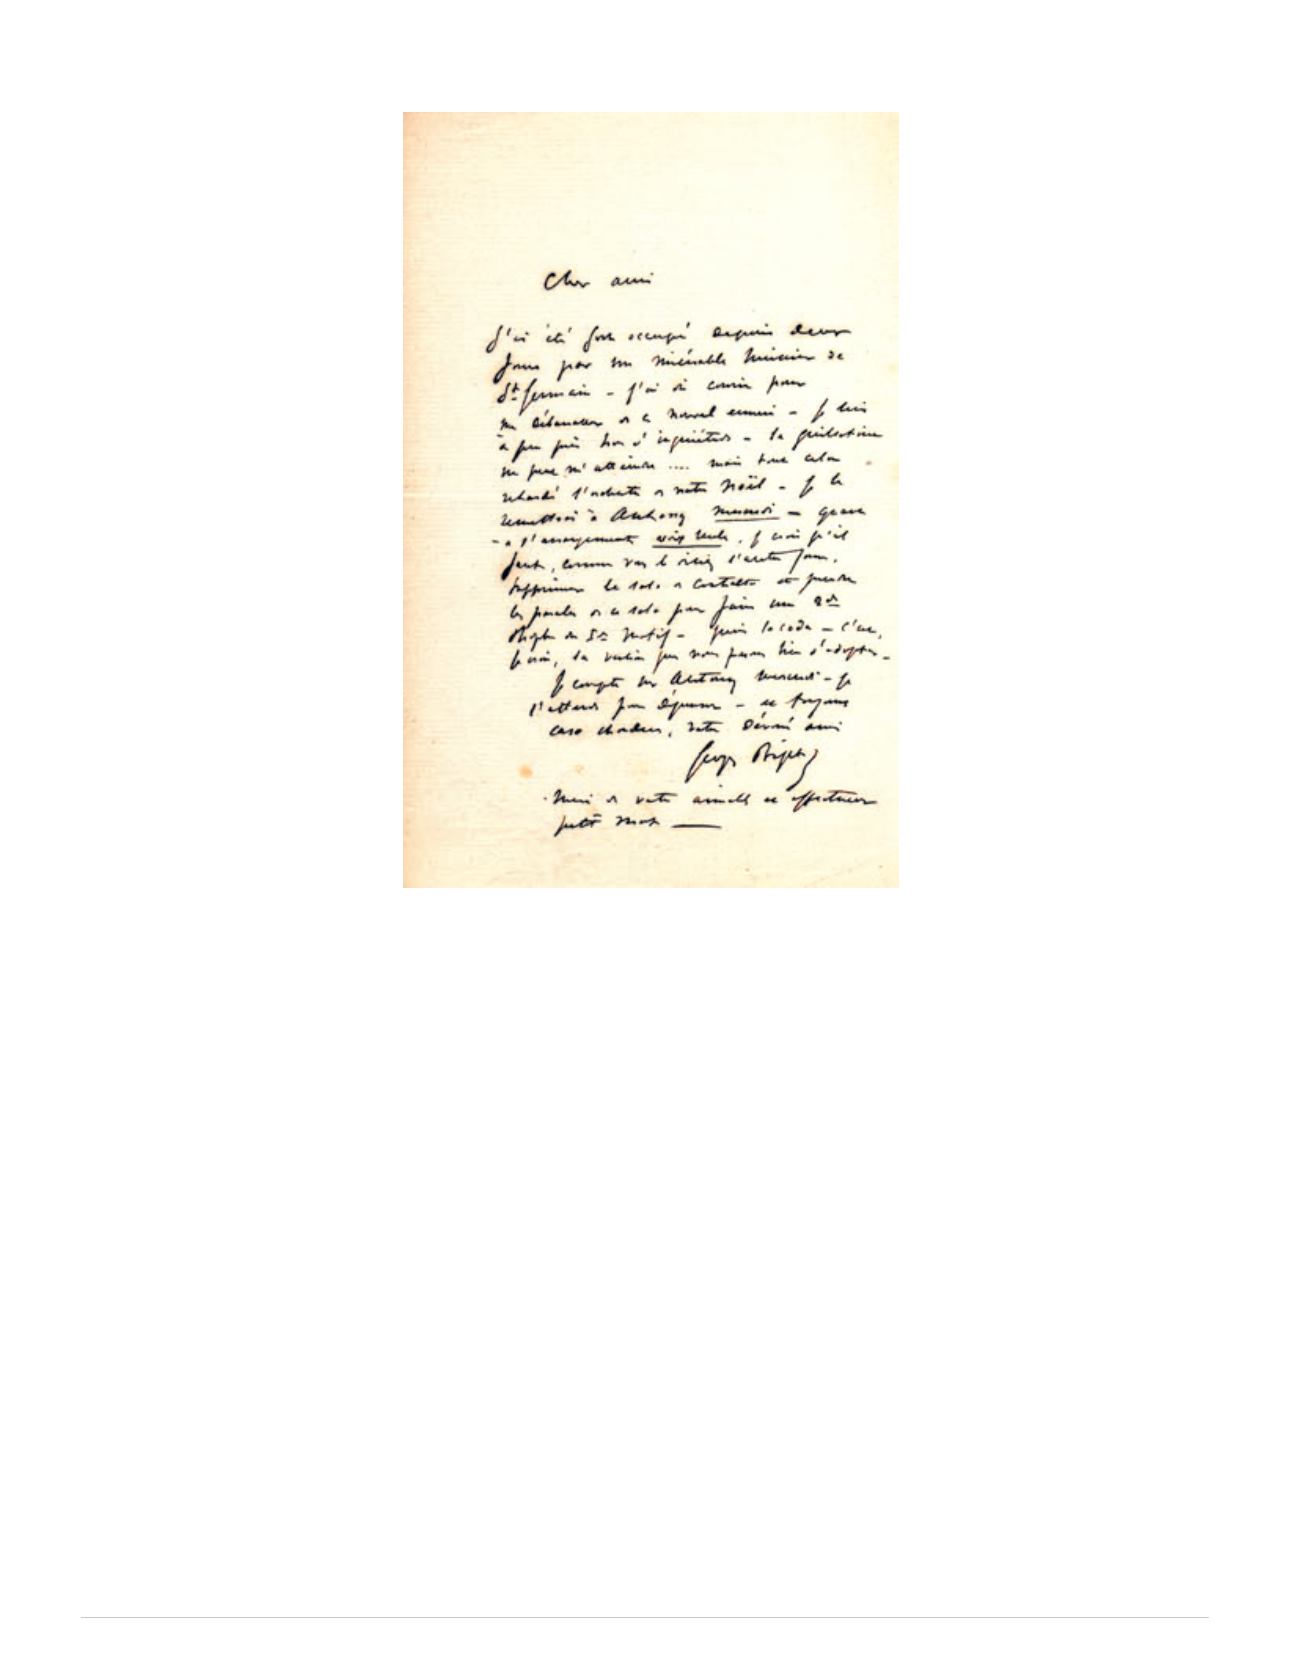 Cher ami
J'ai été fort occupé depuis deux
jours par un misérable huissier de
St Germain - j'ai dû courir pour
me débarrasser de ce nouvel ennemi - Je suis
à peu près hors d'inquiétude - la guillotine
ne peut m'atteindre .... mais tout cela a
retardé l'orchestre de notre Noël - Je le
remettrai à Anthony mercredi - quant
à l'arrangement voix seule, je crois qu'il
faut, comme vous le disiez l'autre jour,
supprimer le solo de contralto et prendre
les paroles de ce solo pour faire un 2d
couplet du 1er motif - puis la coda - c'est,
je crois, la version que nous ferons bien d'adopter -
Je compte sur Anthony mercredi - je
l'attends pour déjeuner - et toujours
caro , votre dévoué ami
Georges Bizet
Merci de votre aimable et affectueux
petit mot